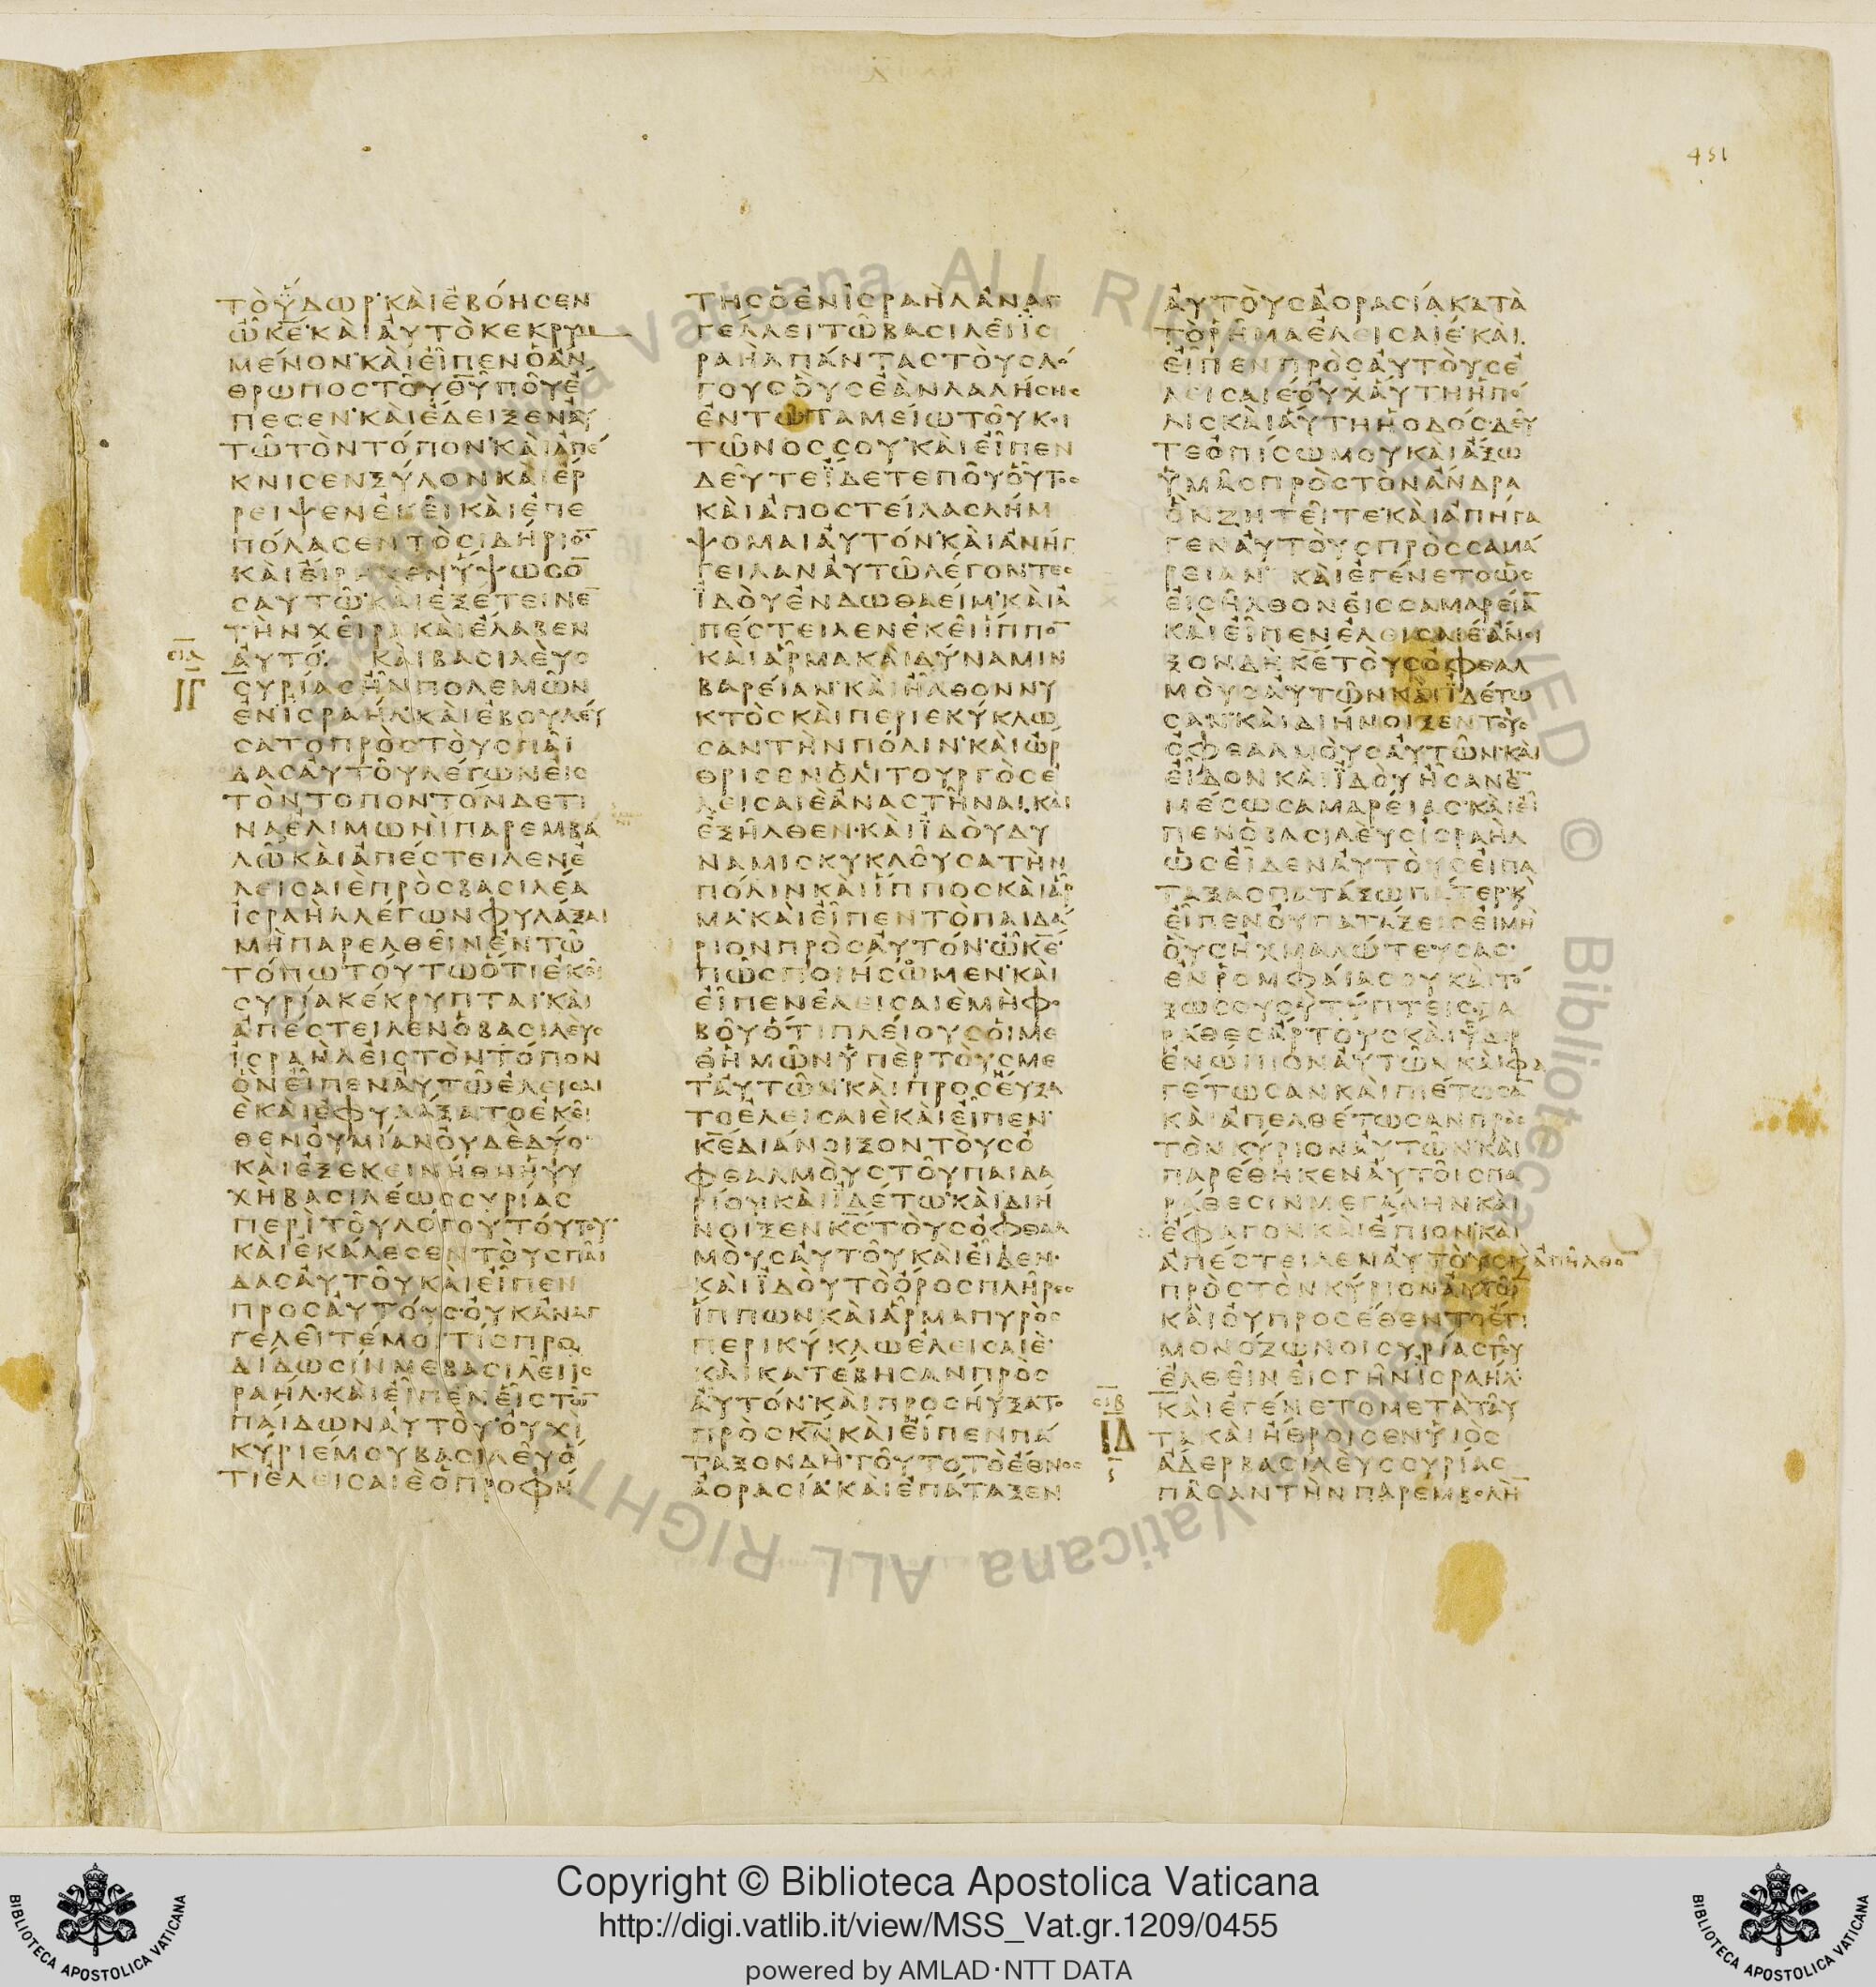 451
ΤῸὝΔΩΡ·ΚΑῚἘΒΌΗϹΕΝ
ὮΚΕ̅·ΚΑῚΑΥ̓ΤῸΚΕΚΡΥΜ
ΜΈΝΟΝ·ΚΑῚΕἾΠΕΝὉΑΝ
ΘΡΩΠΟϹΤΟΥ͂ΘΥ̅ΠΟΥ͂Ε
ΠΕϹΕΝ·ΚΑῚἜΔΕΙΞΕΝΑΥ
ΤΩ͂ΤῸΝΤΌΠΟΝ·ΚΑῚἈΠΕ
ΚΝΙϹΕΝΞΎΛΟΝΚΑῚἜΡ
ΡΕΙΨΕΝἘΚΕΙ͂ΚΑῚἘΠΕ
ΠΌΛΑϹΕΝΤῸϹΙΔΉΡΙΟ̅·
ΚΑῚΕἾΡΗΚΕΝὝΨΩϹΟ̅
ϹΑΥΤΩ͂·ΚΑῚἘΞΈΤΕΙΝΕ̅
ΤῊΝΧΕΙ͂ΡΑΚΑῚἜΛΑΒΕΝ
ΑΥ̓ΤΌ· ΚΑῚΒΑϹΙΛΕῪϹ
ϹΥΡΊΑϹἮΝΠΟΛΕΜΩ͂Ν
ἘΝἸϹΡΑΉΛ·ΚΑῚἘΒΟΥΛΕΥ
ϹΑΤΟΠΡῸϹΤΟῪϹΠΑΙ͂
ΔΑϹΑΥ̓ΤΟΥ͂ΛΈΓΩΝΕἸϹ
ΤῸΝΤΟΠΟΝΤΌΝΔΕΤΙ
ΝΑἘΛΙΜΩΝῚΠΑΡΕΜΒΑ
ΛΩ͂ΚΑῚἈΠΈϹΤΕΙΛΕΝἘ
ΛΕΙϹΑΙῈΠΡῸϹΒΑϹΙΛΈΑ
ἸϹΡΑῊΛΛΈΓΩΝΦΥΛΆΞΑΙ
ΜῊΠΑΡΕΛΘΕΙ͂ΝἘΝΤΩ͂
ΤΌΠΩΤΟΎΤΩὍΤΙἘΚΕΙ͂
ϹΥΡΊΑΚΈΚΡΥΠΤΑΙ·ΚΑῚ
ἈΠΈϹΤΕΙΛΕΝὉΒΑϹΙΛΕῪϹ
ἸϹΡΑῊΛΕἸϹΤῸΝΤΌΠΟΝ
ὋΝΕἾΠΕΝΑΥ̓ΤΩ͂ἘΛΕΙϹΑΙ
ῈΚΑῚἘΦΥΛΆΞΑΤΟἘΚΕΙ͂
ΘΕΝΟΥ̓ΜΊΑΝΟΥ̓ΔῈΔΎΟ·
ΚΑῚἘΞΕΚΕΙΝΉΘΗἩΨΥ
ΧῊΒΑϹΙΛΈΩϹϹΥΡΊΑϹ
ΠΕΡῚΤΟΥ͂ΛΌΓΟΥΤΟΎΤΟΥ·
ΚΑῚἘΚΆΛΕϹΕΝΤΟῪϹΠΑΙ͂
ΔΑϹΑΥ̓ΤΟΥ͂ΚΑῚΕἾΠΕΝ
ΠΡΟϹΑΥ̓ΤΟΎϹ·ΟΥ̓ΚἈΝΑΓ
ΓΕΛΕΙ͂ΤΈΜΟΙΤΊϹΠΡΟ
ΔΊΔΩϹΊΝΜΕΒΑϹΙΛΕΙ͂ἸϹ
ΡΑΉΛ·ΚΑῚΕἾΠΕΝΕἿϹΤΩ̅
ΠΑΊΔΩΝΑΥ̓ΤΟΥ͂·ΟΥ̓ΧῚ
ΚΎΡΙΈΜΟΥΒΑϹΙΛΕΥ͂Ὅ
ΤΙἘΛΕΙϹΑΙῈὉΠΡΟΦΉ
ϹΙΑ
ΙΓ
ΤΗϹὉἘΝἸϹΡΑῊΛἈΝΑΓ
ΓΈΛΛΕΙΤΩ͂ΒΑϹΙΛΕΙ͂ἸϹ
ΡΑῊΛΠΆΝΤΑϹΤΟῪϹΛΌ
ΓΟΥϹΟὛϹἘᾺΝΛΑΛΉϹΗϹ
ἘΝΤΩ͂ΤΑΜΕΊΩΤΟΥ͂ΚΟΙ
ΤΩ͂ΝΌϹϹΟΥ·ΚΑῚΕἾΠΕΝ
ΔΕΥ͂ΤΕἼΔΕΤΕΠΟΥ͂ΟὟΤΟϹ
ΚΑῚἈΠΟϹΤΕΊΛΑϹΛΉΜ
ΨΟΜΑΙΑΥ̓ΤΌΝ·ΚΑῚἈΝΉΓ
ΓΕΙΛΑΝΑΥ̓ΤΩ͂ΛΈΓΟΝΤΕϹ
ἸΔΟῪἘΝΔΩΘΑΕΊΜ·ΚΑῚἈ
ΠΈϹΤΕΙΛΕΝἘΚΕΙ͂ἽΠΠΟ̅
ΚΑῚἍΡΜΑΚΑῚΔΎΝΑΜΙΝ
ΒΑΡΕΊΑΝ·ΚΑῚἮΛΘΟΝΝΥ
ΚΤῸϹΚΑῚΠΕΡΙΕΚΎΚΛΩ
ϹΑΝΤῊΝΠΌΛΙΝ·ΚΑῚὬΡ
ΘΡΙϹΕΝὉΛΙΤΟΥΡΓῸϹἘ
ΛΕΙϹΑΙῈἈΝΑϹΤΗ͂ΝΑΙ.ΚΑῚ
ἘΞΗ͂ΛΘΕΝ·ΚΑῚἸΔΟῪΔΥ
ΝΑΜΙϹΚΥΚΛΟΥ͂ϹΑΤῊΝ
ΠΌΛΙΝΚΑῚἽΠΠΟϹΚΑῚἍΡ
ΜΑ·ΚΑῚΕἾΠΕΝΤῸΠΑΙΔΆ
ΡΙΟΝΠΡῸϹΑΥ̓ΤΌΝ·ὮΚΕ̅·
ΠΩ͂ϹΠΟΙΉϹΩΜΕΝ·ΚΑῚ
ΕἾΠΕΝἘΛΕΙϹΑΙῈΜῊΦΟ
ΒΟΥ͂ὍΤΙΠΛΕΊΟΥϹΟἹΜΕ
Θ̓ἩΜΩ͂ΝὙΠῈΡΤΟῪϹΜΕ
ΤΑΥ̓ΤΩ͂Ν·ΚΑῚΠΡΟϹΕΎΞΑ
ΤΟἘΛΕΙϹΑΙῈΚΑῚΕἾΠΕΝ·
ΚΕ̅ΔΙΆΝΟΙΞΟΝΤΟῪϹὈ
ΦΘΑΛΜΟῪϹΤΟΥ͂ΠΑΙΔΑ
ΡΊΟΥ·ΚΑῚἸΔΈΤΩ·ΚΑῚΔΙΉ
ΝΟΙΞΕΝΚϹ̅ΤΟῪϹὈΦΘΑΛ
ΜΟῪϹΑΥ̓ΤΟΥ͂ΚΑῚΕἾΔΕΝ·
ΚΑῚἸΔΟῪΤῸὌΡΟϹΠΛΗ͂ΡΕϹ
ἽΠΠΩΝΚΑῚἍΡΜΑΠΥΡῸϹ
ΠΕΡΙΚΎΚΛΩἘΛΕΙϹΑΙῈ·
ΚΑῚΚΑΤΈΒΗϹΑΝΠΡῸϹ
ΑΥ̓ΤΌΝ·ΚΑῚΠΡΟϹΗΎΞΑΤΟ
ΠΡῸϹΚΝ̅ΚΑῚΕἾΠΕΝΠΆ
ΤΑΞΟΝΔῊ·ΤΟΥ͂ΤΟΤῸἜΘΝΟϹ
ἈΟΡΑϹΊΑ·ΚΑῚἘΠΆΤΑΞΕΝ
ΑΥ̓ΤΟῪϹἈΟΡΑϹΊΑΚΑΤᾺ
ΤῸῬΗ͂ΜΑἘΛΕΙϹΑΙΈ·ΚΑῚ.
ΕἾΠΕΝΠΡῸϹΑΥ̓ΤΟῪϹἘ
ΛΕΙϹΑΙΈΟΥ̓ΧΑὝΤΗἩΠΌ
ΛΙϹΚΑῚΑὝΤΗἩΟΔΌϹ·ΔΕΥ͂
ΤΕὈΠΊϹΩΜΟΥΚΑῚἌΞΩ
ὙΜΑ͂ϹΠΡῸϹΤῸΝἌΝΔΡΑ
ὋΝΖΗΤΕΙ͂ΤΕ·ΚΑῚἈΠΉΓΑ
ΓΕΝΑΥ̓ΤΟῪϹΠΡῸϹϹΑΜΆ
ΡΕΙΑΝ· ΚΑῚἘΓΈΝΕΤΟὩϹ
ΕἸϹΗ͂ΛΘΟΝΕἸϹϹΑΜΑΡΕΊΑ̅
ΚΑῚΕἾΠΕΝἘΛΕΙϹΑΙΈἌΝΟΙ
ΞΟΝΔῊΚΕ̅ΤΟῪϹὈΦΘΑΛ
ΜΟῪϹΑΥ̓ΤΩ͂ΝΚΑῚἸΔΈΤΩ
ϹΑΝ·ΚΑῚΔΙΉΝΟΙΞΕΝΤΟῪϹ
ὈΦΘΑΛΜΟῪϹΑΥ̓ΤΩ͂Ν·ΚΑῚ
ΕἾΔΟΝΚΑῚἸΔΟῪἮϹΑΝἘ̅
ΜΈϹΩϹΑΜΑΡΕΊΑϹ·ΚΑῚΕἾ
ΠΕΝὉΒΑϹΙΛΕῪϹἸϹΡΑῊΛ
ὩϹΕἾΔΕΝΑΥ̓ΤΟῪϹΕἸΠΑ
ΤΑΞΑϹΠΑΤΆΞΩΠΆΤΕΡ·Κ̀
ΕἾΠΕΝΟΥ̓ΠΑΤΆΞΕΙϹΕἸΜῊ
ΟὛϹἨΧΜΑΛΏΤΕΥϹΑϹ·
ἘΝῬΟΜΦΑΊΑϹΟΥΚΑῚΤΌ
ΞΩϹΟΥϹῪΤΎΠΤΕΙϹ·ΠΑ
ΡΆΘΕϹἌΡΤΟΥϹΚΑῚὝΔΩΡ
ἘΝΏΠΙΟΝΑΥ̓ΤΩ͂ΝΚΑῚΦΑ
ΓΈΤΩϹΑΝΚΑῚΠΙΈΤΩϹΑ̅
ΚΑῚἈΠΕΛΘΈΤΩϹΑΝΠΡῸϹ
ΤῸΝΚΎΡΙΟΝΑΥ̓ΤΩ͂Ν·ΚΑῚ
ΠΑΡΈΘΗΚΕΝΑΥ̓ΤΟΙ͂ϹΠΑ
ΡΆΘΕϹΙΝΜΕΓΆΛΗΝΚΑῚ
ἜΦΑΓΟΝΚΑῚἜΠΙΟΝ·ΚΑῚ
ἈΠΈϹΤΕΙΛΕΝΑΥ̓ΤΟῪϹΚ̀ἈΠΗ͂ΛΘΟ̅
ΠΡῸϹΤῸΝΚΎΡΙΟΝΑΥ̓ΤΩ͂
ΚΑῚΟΥ̓ΠΡΟϹΈΘΕΝΤΟἜΤΙ
ΜΟΝΌΖΩΝΟΙϹΥΡΊΑϹΤΟΥ͂
ἘΛΘΕΙ͂ΝΕἸϹΓΗ͂ΝἸϹΡΑΉΛ·
ΚΑῚἘΓΈΝΕΤΟΜΕΤᾺΤΑΥ͂
ΤΑΚΑῚἬΘΡΟΙϹΕΝΥἹῸϹ
ἌΔΕΡΒΑϹΙΛΕῪϹϹΥΡΊΑϹ
ΠΑ͂ϹΑΝΤῊΝΠΑΡΕΜΒΟΛῊ̅
ϹΙΒ
ΙΔ
Ϛ
Copyright © Biblioteca Apostolica Vaticana
http://digi.vatlib.it/view/MSS_Vat.gr.1209/0455
powered by AMLAD·NTT DATA
BIBLIOTECA APOSTOLICA VATICANA
BIBLIOTECA APOSTOLICA VATICANA